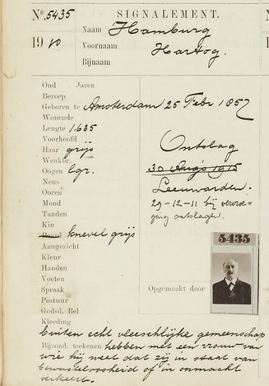 No. 5435 SIGNALEMENT.
1910 Naam Hamburg
Voornaam Hartog.
Bijnaam
Oud Jaren
Beroep
Geboren te Amsterdam 25 Febr 1857
Wonende
Lengte 1.635
Voorhoofd
Haar grijs
Wenkbr.
Oogen lgr.
Neus
Ooren
Mond
Tanden
Kin
Baard knevel grijs
Aangezicht
Kleur
Handen
Voeten
Spraak
Postuur
Godsd. Bel
Kleeding
Bijzond. teekenen
Ontslag
30 Aug's 1915
Leeuwarden.
29-12-11 bij
ontslagen
5435
Opgemaakt door
buiten echt vleeschlijke gemeenschap
hebben met eene vrouw van
wie hij weet dat zij in staat van
bewusteloosheid of in onmacht
verkeert.